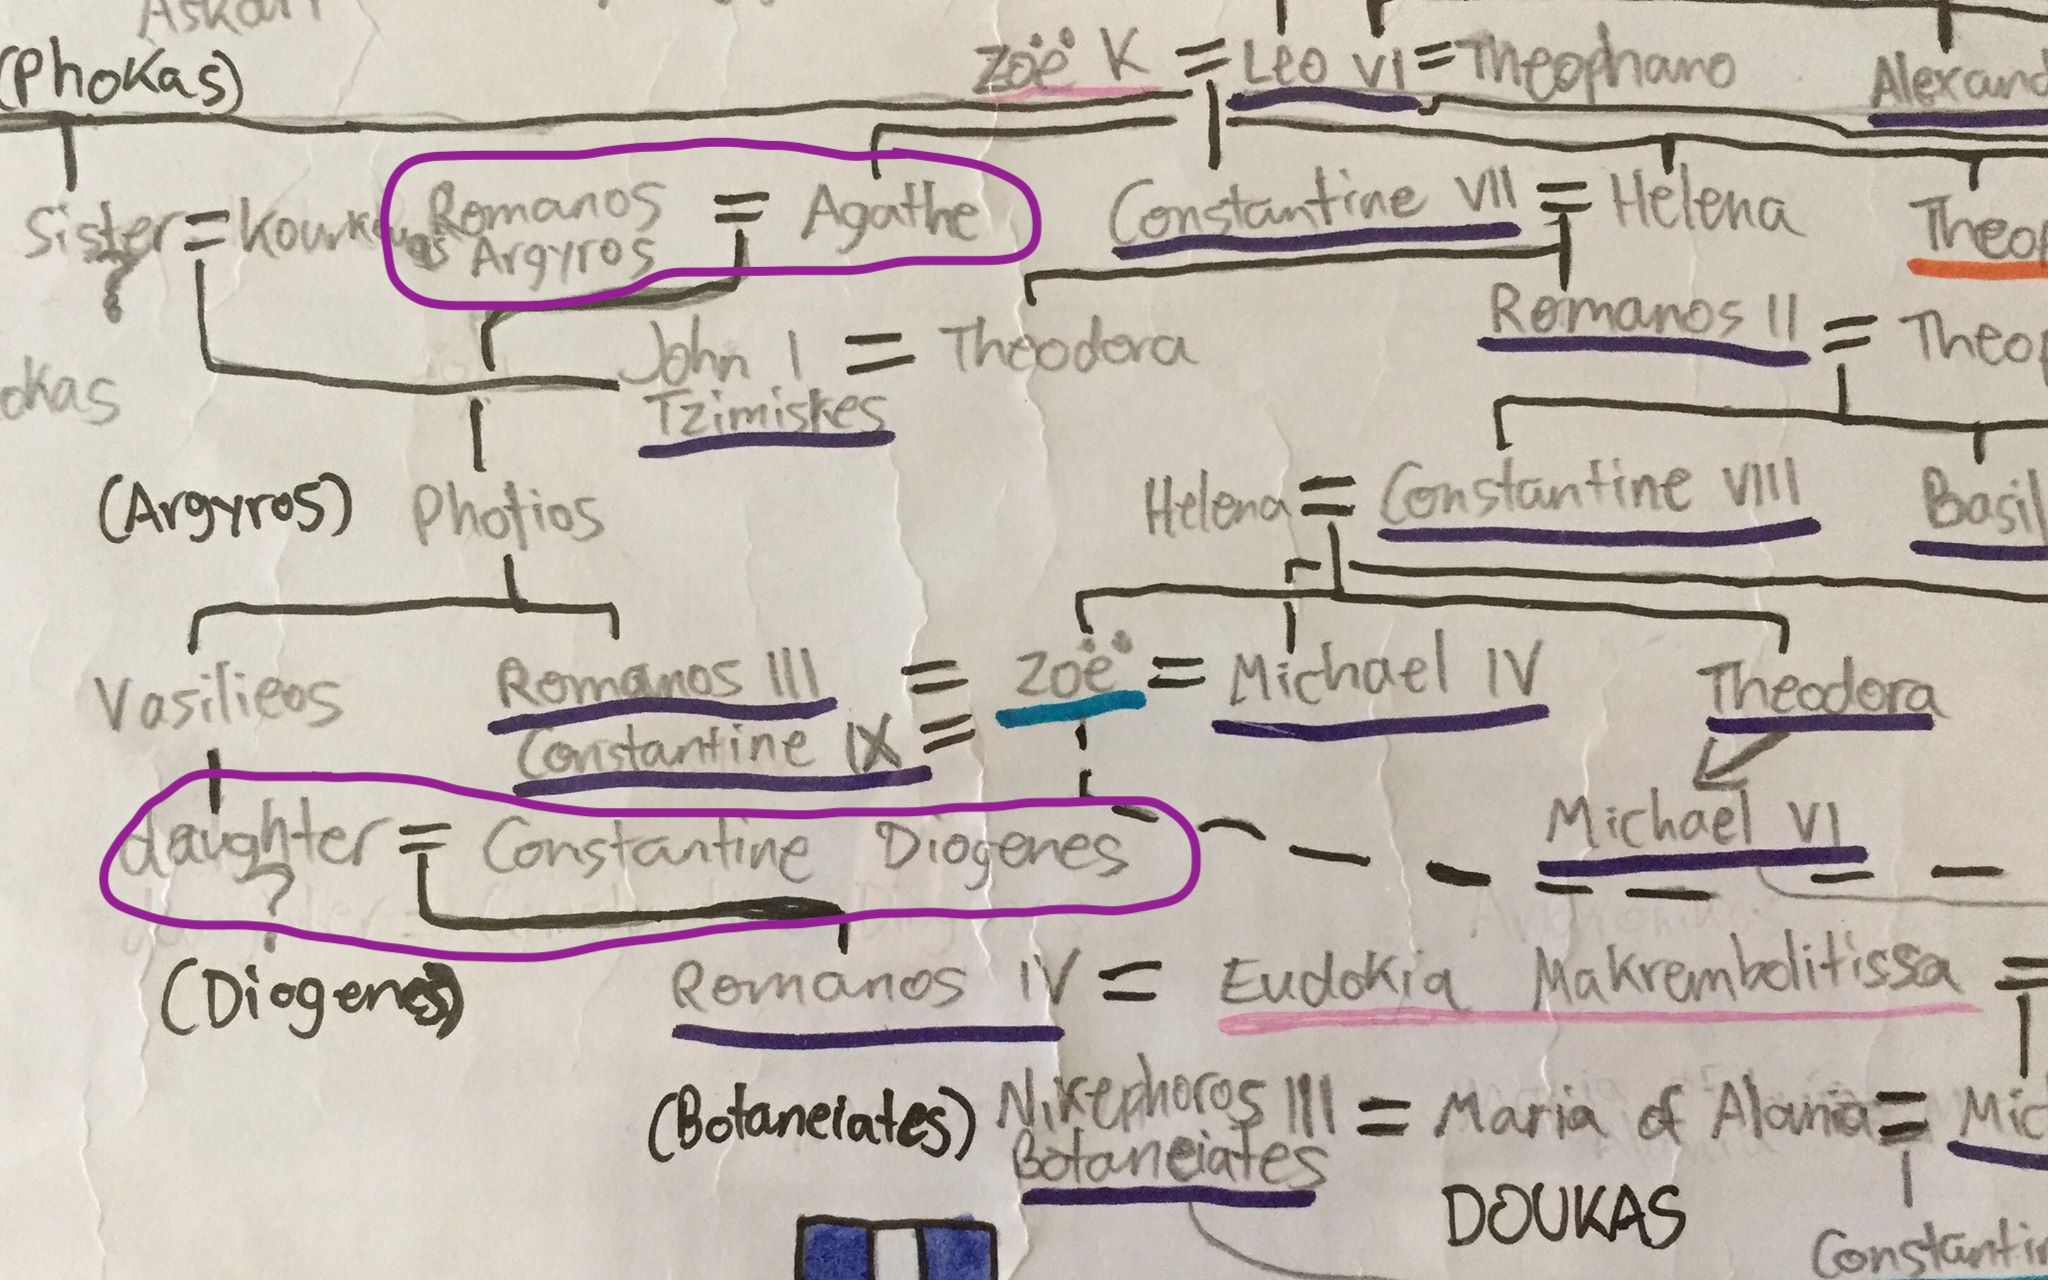 (Phokas)
Zoë K = Leo VI = Theophano
Sister = Romanos = Agathe
?
Argyros
Constantine VII = Helena
Romanos II =
John I = Theodora
Tzimiskes
(Argyros) Photios
Helena = Constantine VIII
Vasilieos Romanos III = Zoë = Michael IV Theodora
Constantine IX =
Michael VI
daughter = Constantine Diogenes
?
(Diogenes)
Romanos IV = Eudokia Makrembolitissa =
(Botaneiates) Nikephoros III = Maria of Alania =
Botaneiates
DOUKAS